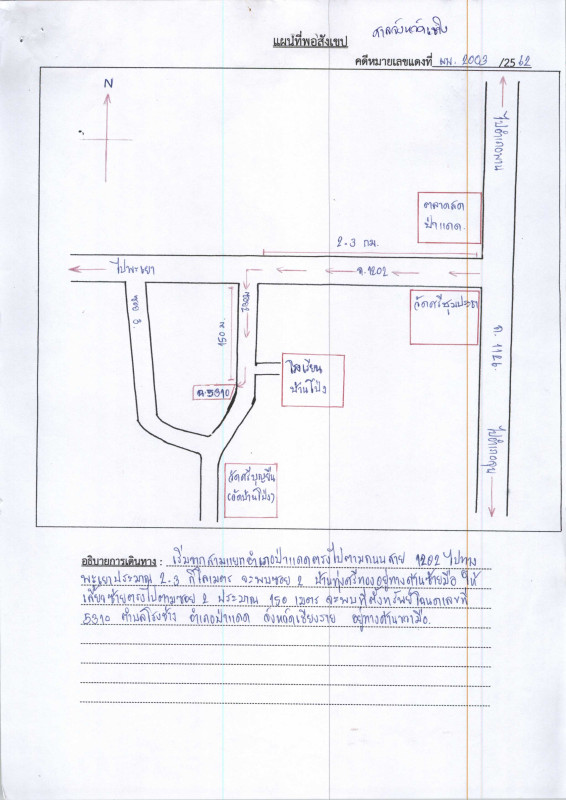 ศาลจังหวัดเชียง
แผนที่พอสังเขป
คดีหมายเลขแดงที่ ผบ. 2003 /2562
N
ไปอำเภอพาน
ตลาดสด
ป่าแดด
2-3 กม.
ไปพะเยา
ถ.1202
วัดศรีชุมประชา
ซอย 3
150 ม.
ซอย2
ถ. 1126
โรงเรียน
บ้านโป่ง
ฉ.5310
วัดศรีบุญยืน
(วัดบ้านโป่ง)
อธิบายการเดินทาง : เริ่มจากสามแยกอำเภอป่าแดดตรงไปตามถนนสาย 1202 ไปทาง
พะเยาประมาณ 2-3 กิโลเมตร จะพบซอย 2 บ้านทุ่งศรีทองอยู่ทางด้านซ้ายมือ ให้
เลี้ยวซ้ายตรงไปตามซอย 2 ประมาณ 150 เมตร จะพบที่ตั้งทรัพย์โฉนดเลขที่
5310 ตำบลโรงช้าง อำเภอป่าแดด จังหวัดเชียงราย อยู่ทางด้านขวามือ.